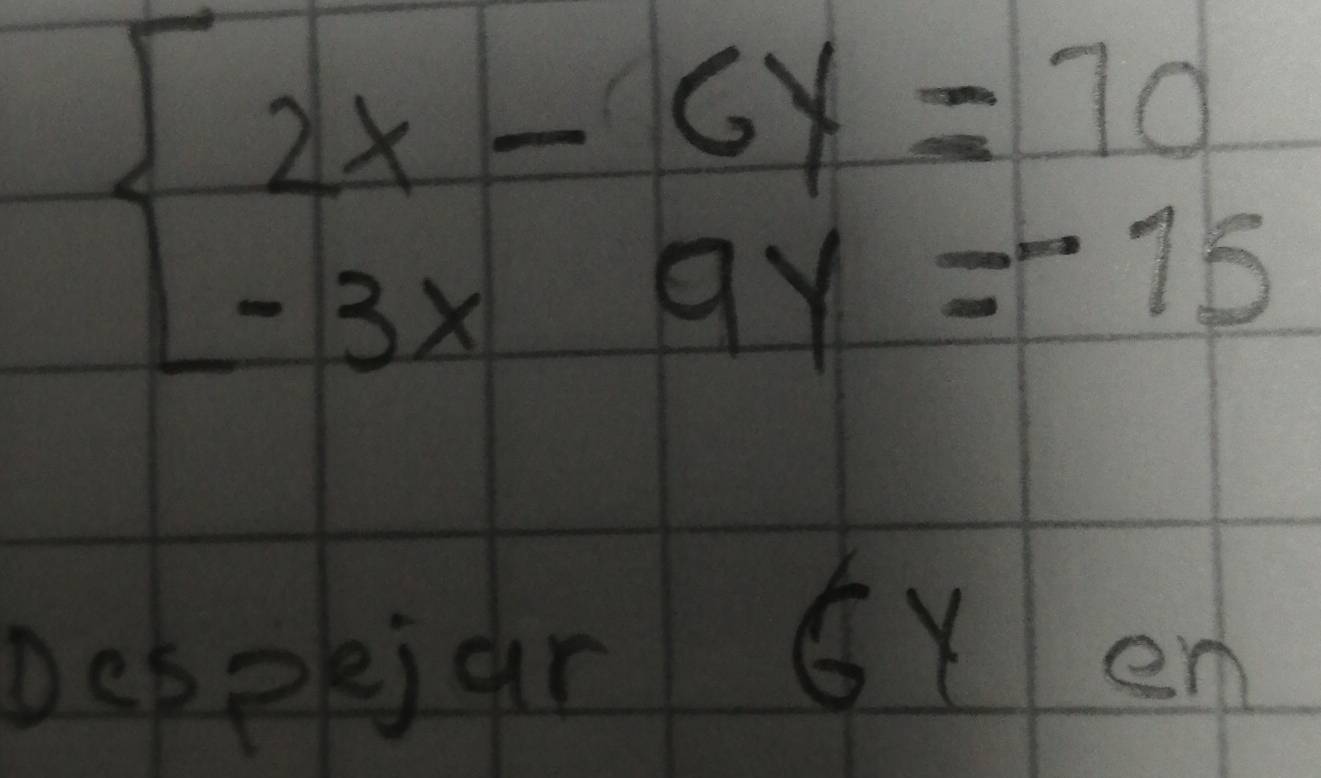 2x - 6y = 10
-3x 9y = -15
Despejar 6y en